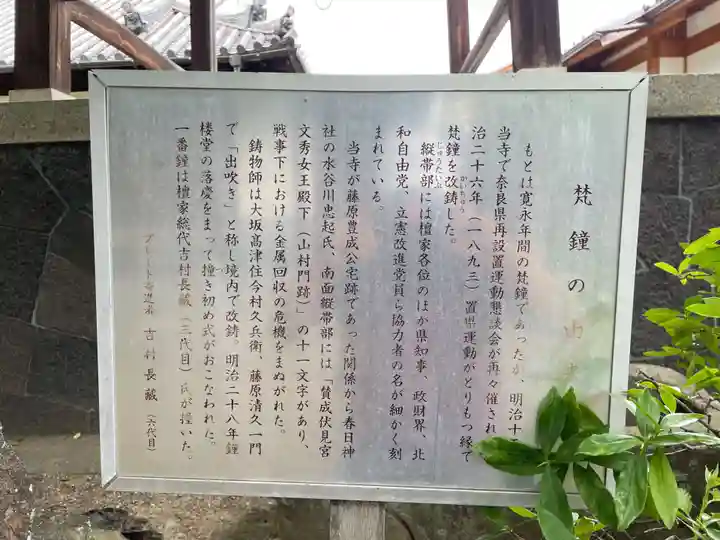 梵鐘の由
もとは寛永年間の梵鐘であったが、明治十
当寺で奈良県再設置運動懇談会が再々催され
治二十六年(一八九三)置県運動がとりもつ縁で
梵鐘を改鋳した。
かいちゅう
じゅうたいぶ
縦帯部には檀家各位のほか県知事、政財界、北
和自由党、立憲改進党員ら協力者の名が細かく刻
まれている。
当寺が藤原豊成公宅跡であった関係から春日神
社の水谷川忠起氏、南面縦帯部には「賛成伏見宮
文秀女王殿下(山村門跡)」の十一文字があり、
戦事下における金属回収の危機をまぬがれた。
鋳物師は大坂高津住今村久兵衛、藤原清久一門
で「出吹き」と称し境内で改鋳。明治二十八年鐘
楼堂の落慶をまって撞き初め式がおこなわれた。
つ
一番鐘は檀家総代吉村長蔵(三代目)氏が撞いた。
プレート寄進者 吉村長蔵(六代目)